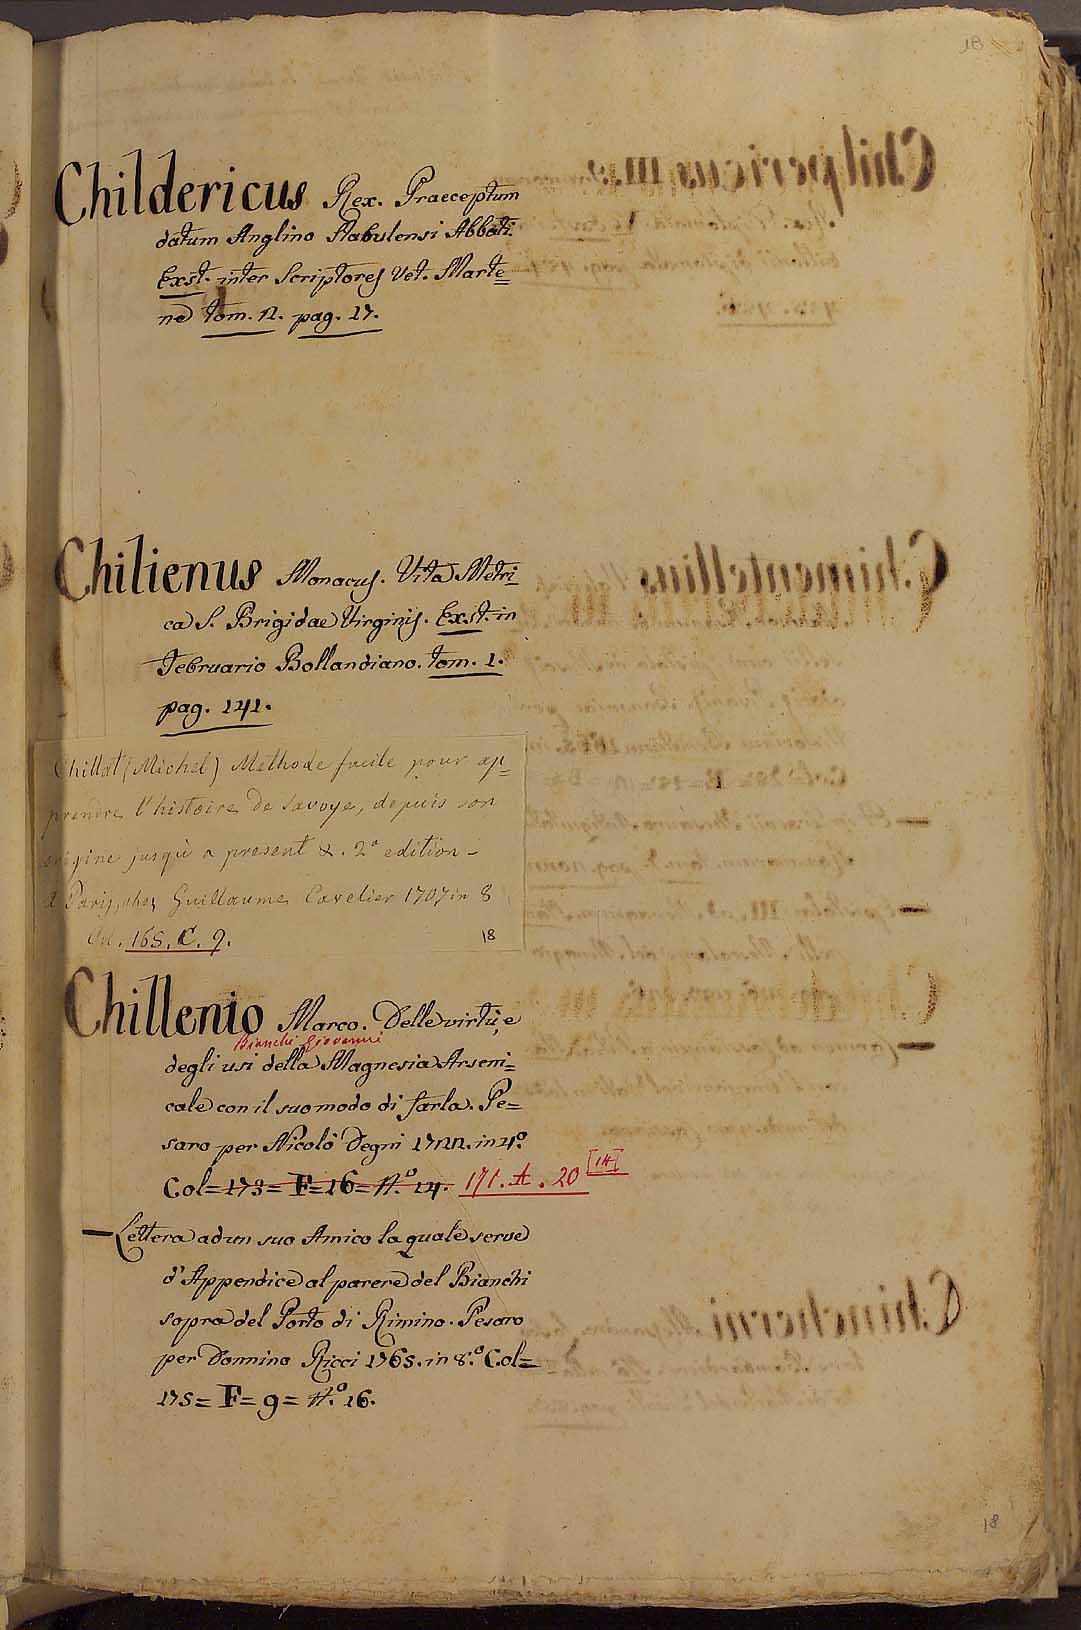 18
Childericus Rex. Praeceptum
datum Anglino Stabulensi Abbati.
Exst. inter Scriptores Vet. Marte=
ne tom. 2. pag. 17.
Chilienus Monacus. Vita Metri=
ca S. Brigidae Virginis. Exst. in
Februario Bollandiano. tom. 1.
pag. 141.
Chillat (Michel) Méthode facile pour ap=
prendre l'histoire de Savoye, depuis son
origine jusqu'à present &. 2a edition -
A Paris, chez Guillaume Cavelier 1707 in 8
Col. 165. C. 9.
18
Chillenio Marco. Delle virtù, e
Bianchi Giovanni
degli usi della Magnesia Arseni=
cale con il suo modo di farla. Pe=
saro per Nicolò Degni 1722. in 4.o
Col=173=F=16=N.o 14. 171. A. 20 [14]
— Lettera ad un suo Amico la quale serve
d'Appendice al parere del Bianchi
sopra del Porto di Rimino. Pesaro
per Donnino Ricci 1765. in 8.o Col=
175= F= 9= N.o 16.
18